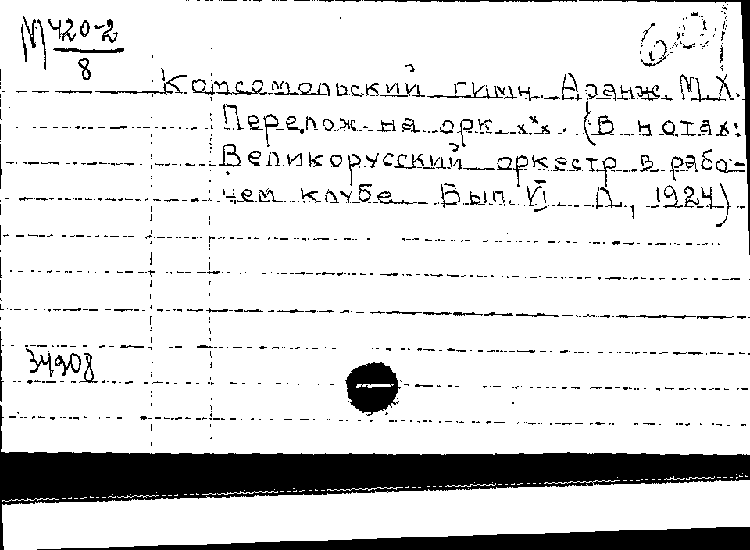 М 420-2
8
601
Комсомольский гимн. Аранж. М. Х.
Перелож. на орк. x*x. (В нотах:
Великорусский оркестр в рабо-
чем клубе. Вып. VI. Л., 1924)
34908